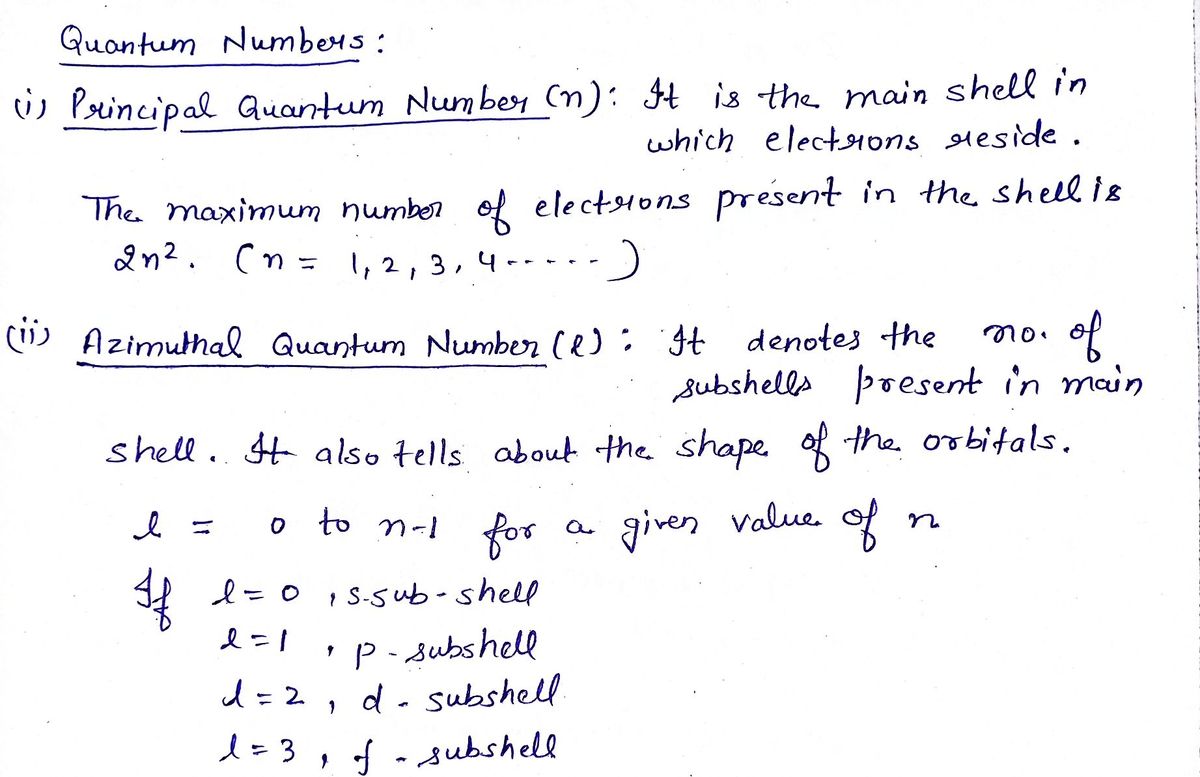 Quantum Numbers :
(i) Principal Quantum Number (n): It is the main shell in
which electrons reside.
The maximum number of electrons present in the shell is
2n². (n = 1, 2, 3, 4 ------)
(ii) Azimuthal Quantum Number (l) : It denotes the no. of
subshells present in main
shell. It also tells about the shape of the orbitals.
l = 0 to n-1 for a given value of n
If l = 0 , s-sub-shell
l = 1 , p - subshell
l = 2 , d - subshell
l = 3 , f - subshell